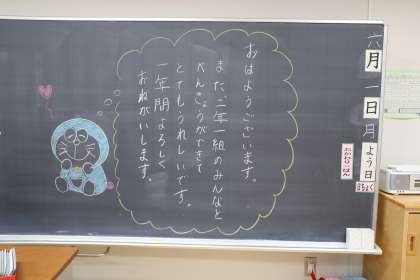 おはようございます。
また、二年一組のみんなと
べんきょうができて
とてもうれしいです。
一年間よろしく
おねがいします。
六月
一日
月よう日